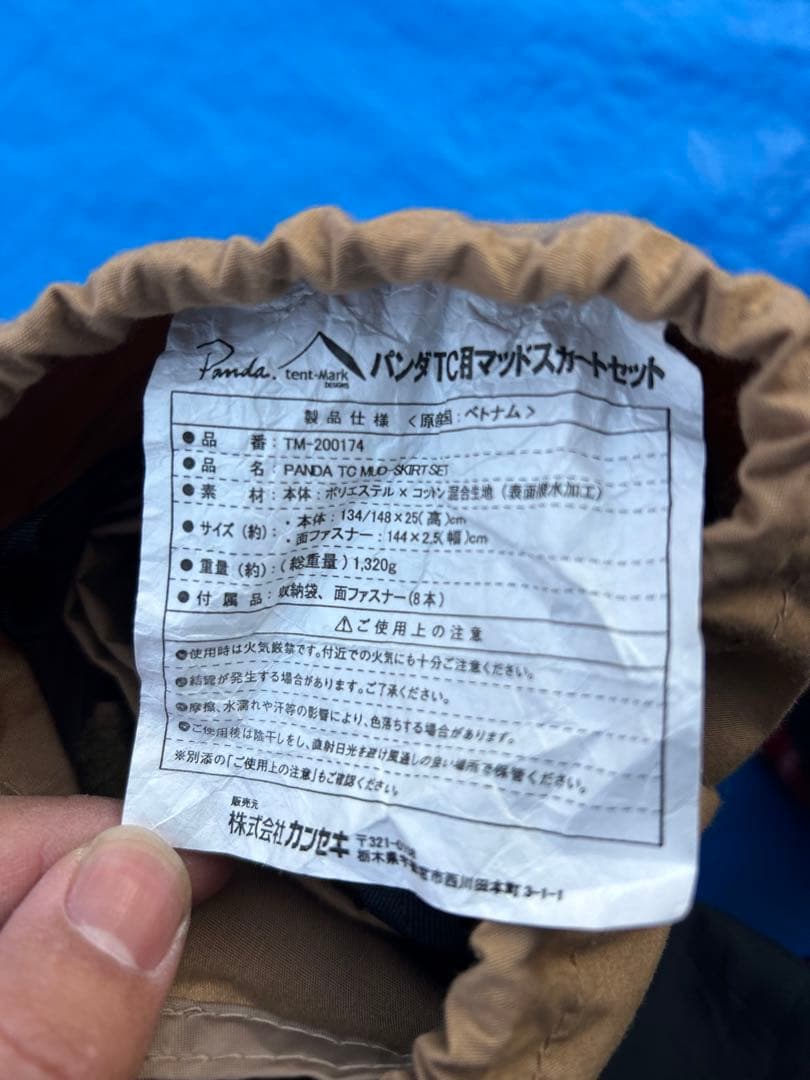 Panda. tent-Mark DESIGNS パンダTC用マッドスカートセット
製品仕様 〈原産国:ベトナム〉
●品 番:TM-200174
●品 名:PANDA TC MUD-SKIRT SET
●素 材:本体:ポリエステル×コットン混合生地(表面撥水加工)
●サイズ(約):・本体:134/148×25(高)cm
・面ファスナー:144×2.5(幅)cm
●重量(約):(総重量)1,320g
●付属品:収納袋、面ファスナー(8本)
⚠ご使用上の注意
●使用時は火気厳禁です。付近での火気にも十分ご注意ください。
●結露が発生する場合があります。ご了承ください。
●摩擦、水濡れや汗等の影響により、色落ちする場合があります。
●ご使用後は陰干しをし、直射日光を避け風通しの良い場所で保管ください。
※別添の「ご使用上の注意」もご確認ください。
販売元
株式会社カンセキ 〒321-0
栃木県宇都宮市西川田本町3-1-1